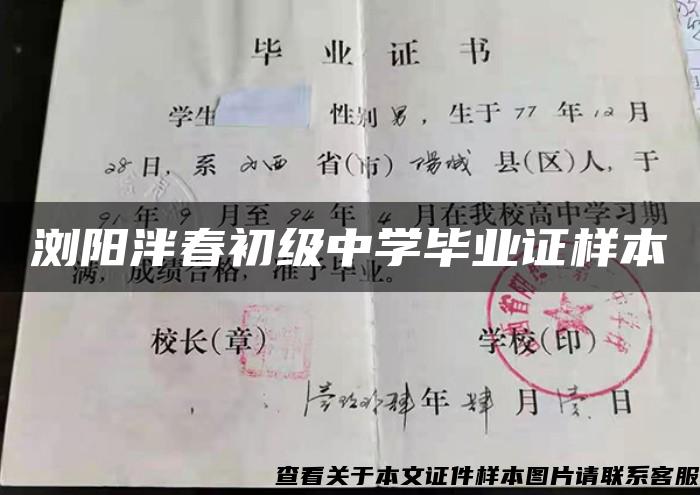 毕业证书
学生 性别男，生于77年12月
28日，系 山西 省(市) 阳城 县(区)人，于
91年9月至94年4月在我校高中学习期
浏阳泮春初级中学毕业证样本
满，成绩合格，准予毕业。
校长(章) 学校(印)
年 肆 月 壹 日
查看关于本文证件样本图片请联系客服